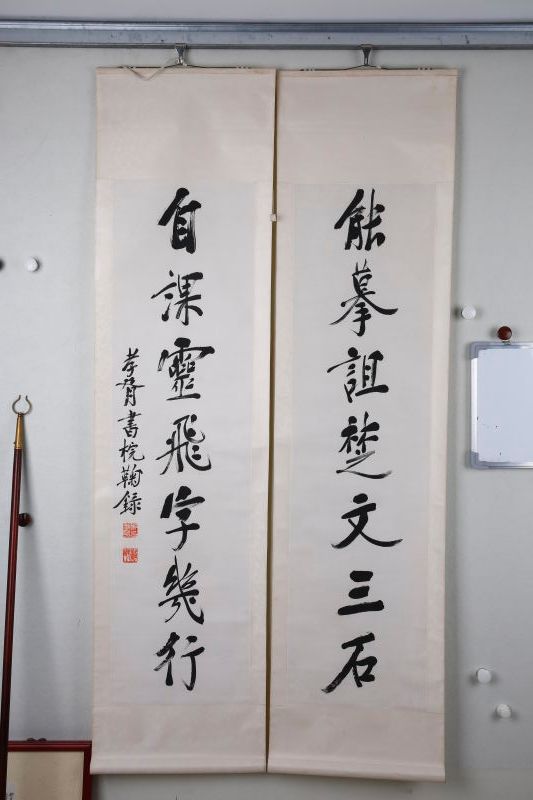 能摹詛楚文三石
自課靈飛字幾行
孝胥書梡鞠録